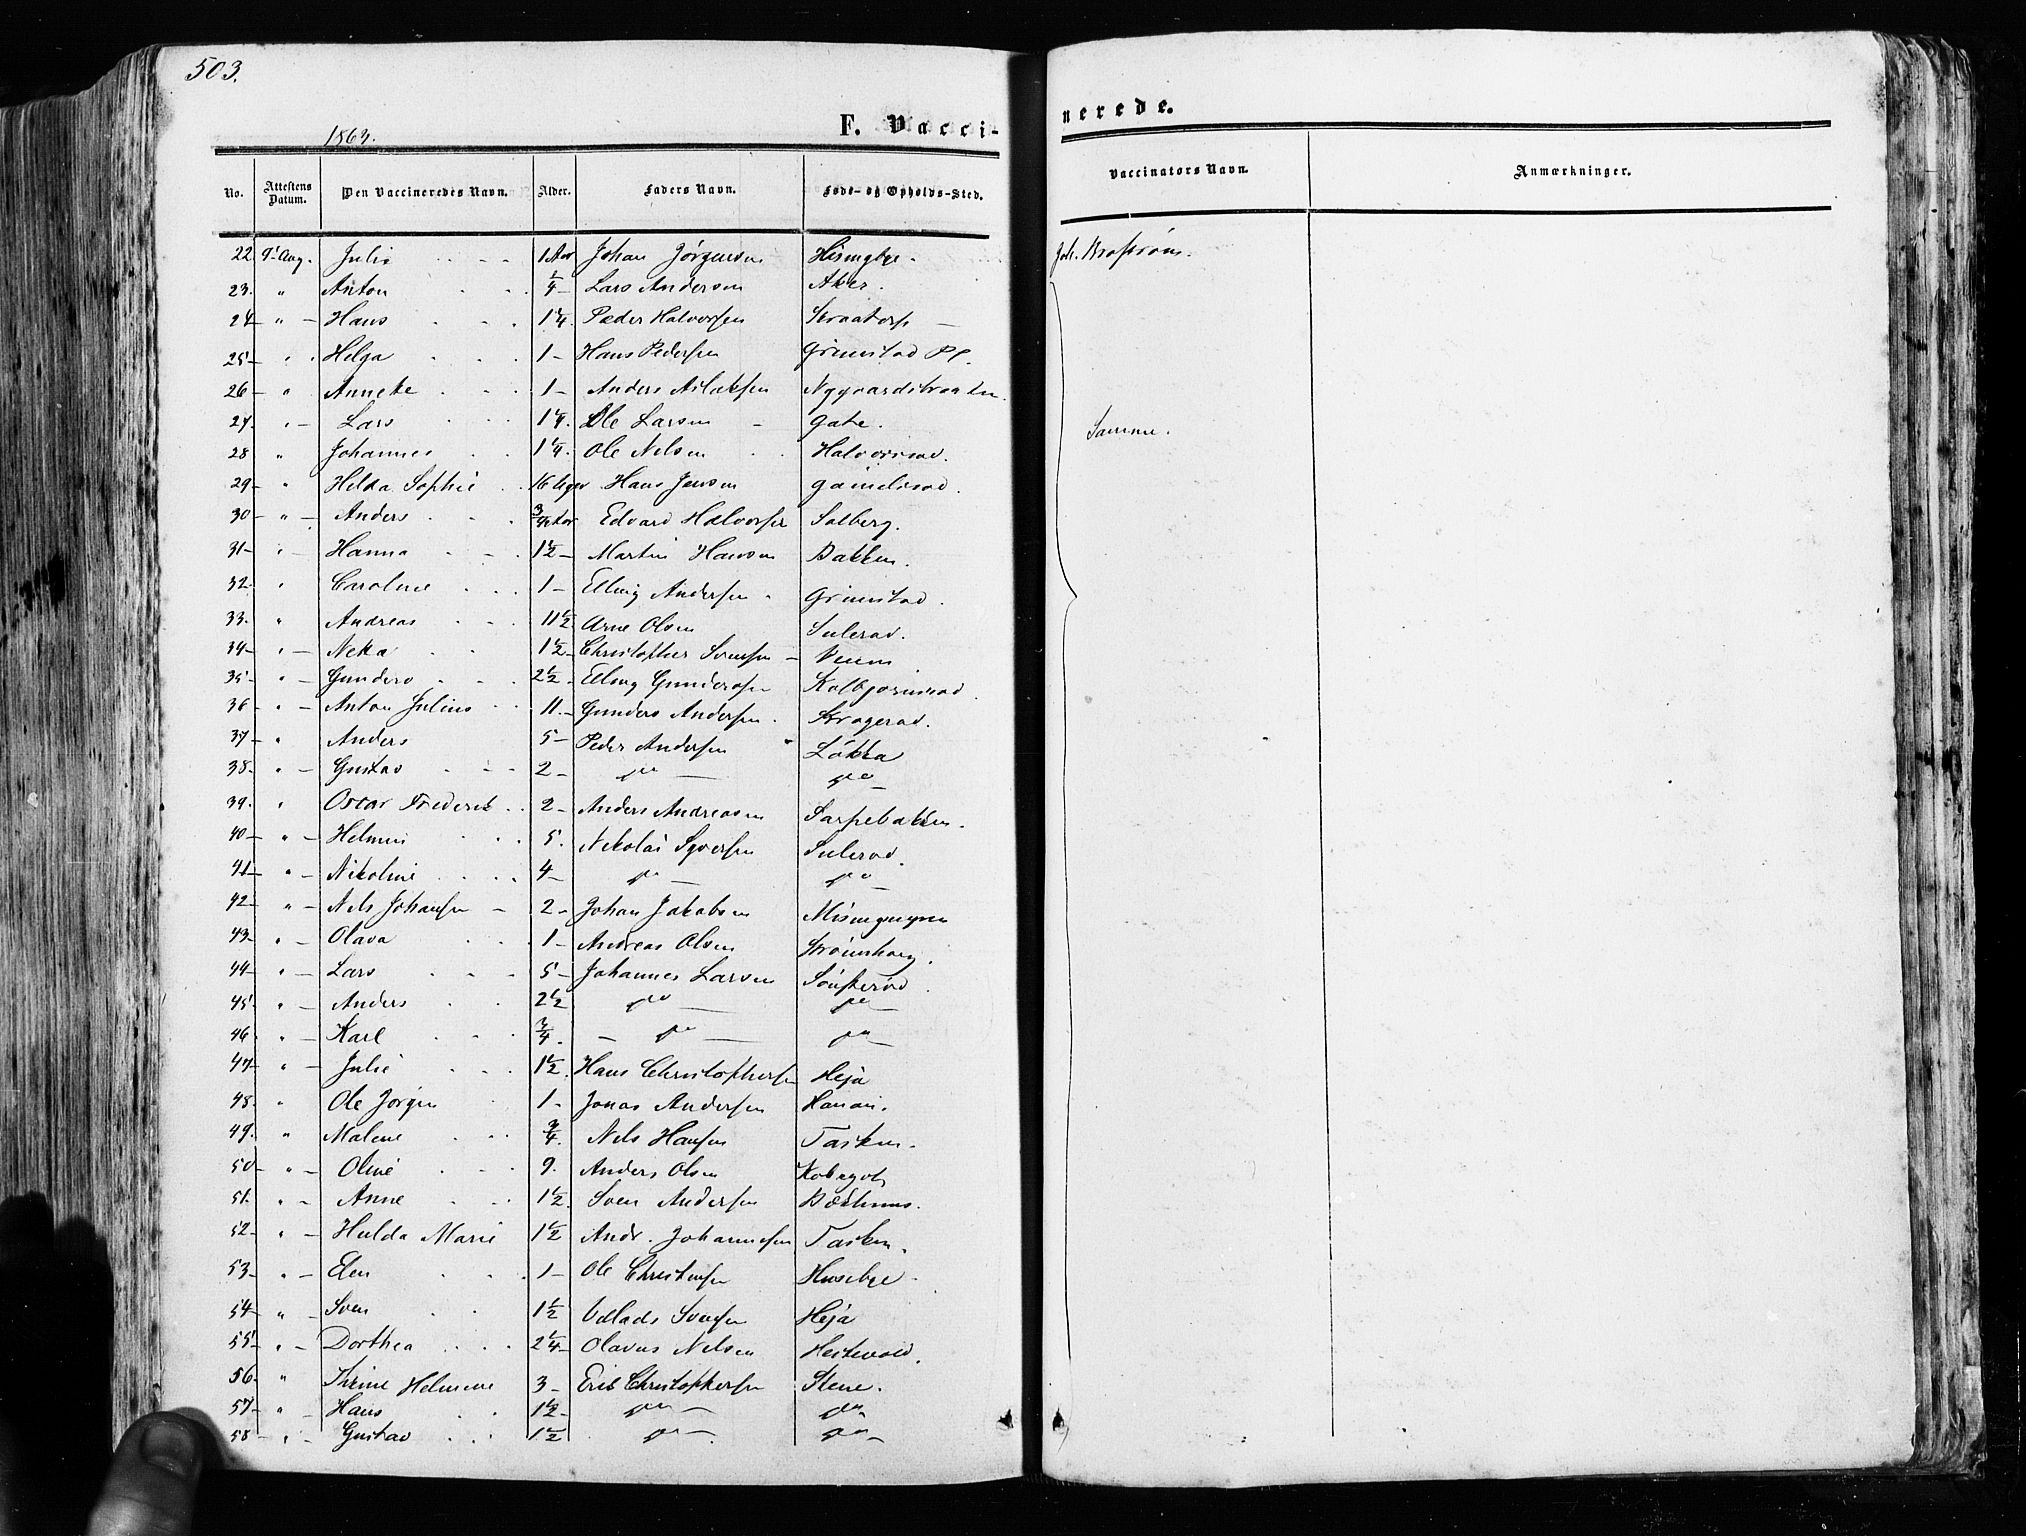 503.
1863.
F. Vacci-
nerede.
No. Attestens Datum. Den Vaccineredes Navn. Alder. Faders Navn. Føde- og Opholds-Sted. Vaccinators Navn. Anmærkninger.
22. 9' Aug. Julie 1 Aar Johan Jørgensen Hisingbye. Joh. Brostrøm.
23. " Anton Lars Andersen Aker.
24 " Hans 1 1/4. Peder Halvorsen
25 " Helga 1 Hans Pedersen Grimstad Pl.
26 " Anneke 1 Anders Aslaksen
27. " Lars 1 1/4. Ole Larsen Gate. Samme.
28 " Johannes 1 1/4. Ole Nelsen Halvorsrød.
29 " Helda Sophie 16 Uger Hans Jensen
30 " Anders 3/4 Aar Edvard Halvorsen Solberg.
31 " Hanna 1 1/2 Martin Hansen Bakken.
32. " Caroline 1 Elling Andersen Grimstad.
33. " Andreas 11 1/2 Arne Olsen Sulerød.
34 " Neka 1 1/2 Christopher Svensen Veum
35 " Gunders 2 1/2 Elling Gundersen Kolbjørnsrød.
36 " Anton Julius 11. Gunders Andersen. Kragerød.
37 " Anders 5 Peder Andersen Løkka
38. " Gustav 2 do do
39. " Oscar Frederik 2 Anders Andreasen Sarpebakken.
40 " Helmen 5. Nikolai Syversen Sulerød.
41 " Nikoline 4 do do
42 " Nels Johansen 2 Johan Jakobsen Misingmyren
43 " Olava 1 Andreas Olsen Strømshoug.
44 " Lars 5 Johannes Larsen
45 " Anders 2 1/2 do do
46 " Karl 3/4. do do
47 " Julie 1 1/2. Hans Christophersen Heja
48. " Ole Jørgen 1 Jonas Andersen Kanan.
49. " Malene 3/4. Nels Hansen Tasken.
50 " Oline 9. Anders Olsen
51. " Anne 1 1/2. Sven Andersen
52 " Hulda Marie 1 1/2 Andr. Johannesen Tasken.
53 " Elen 1 Ole Christensen Husebye.
54 " Sven 1 1/2 Svensen Heja
55 " Dorthea 2 1/4 Olavus Nelsen
56 " Thrine Helmine 3 Eric Christophersen Stene.
57 " Hans 1 1/2 do do
58 " Gustav 1 1/2 do do